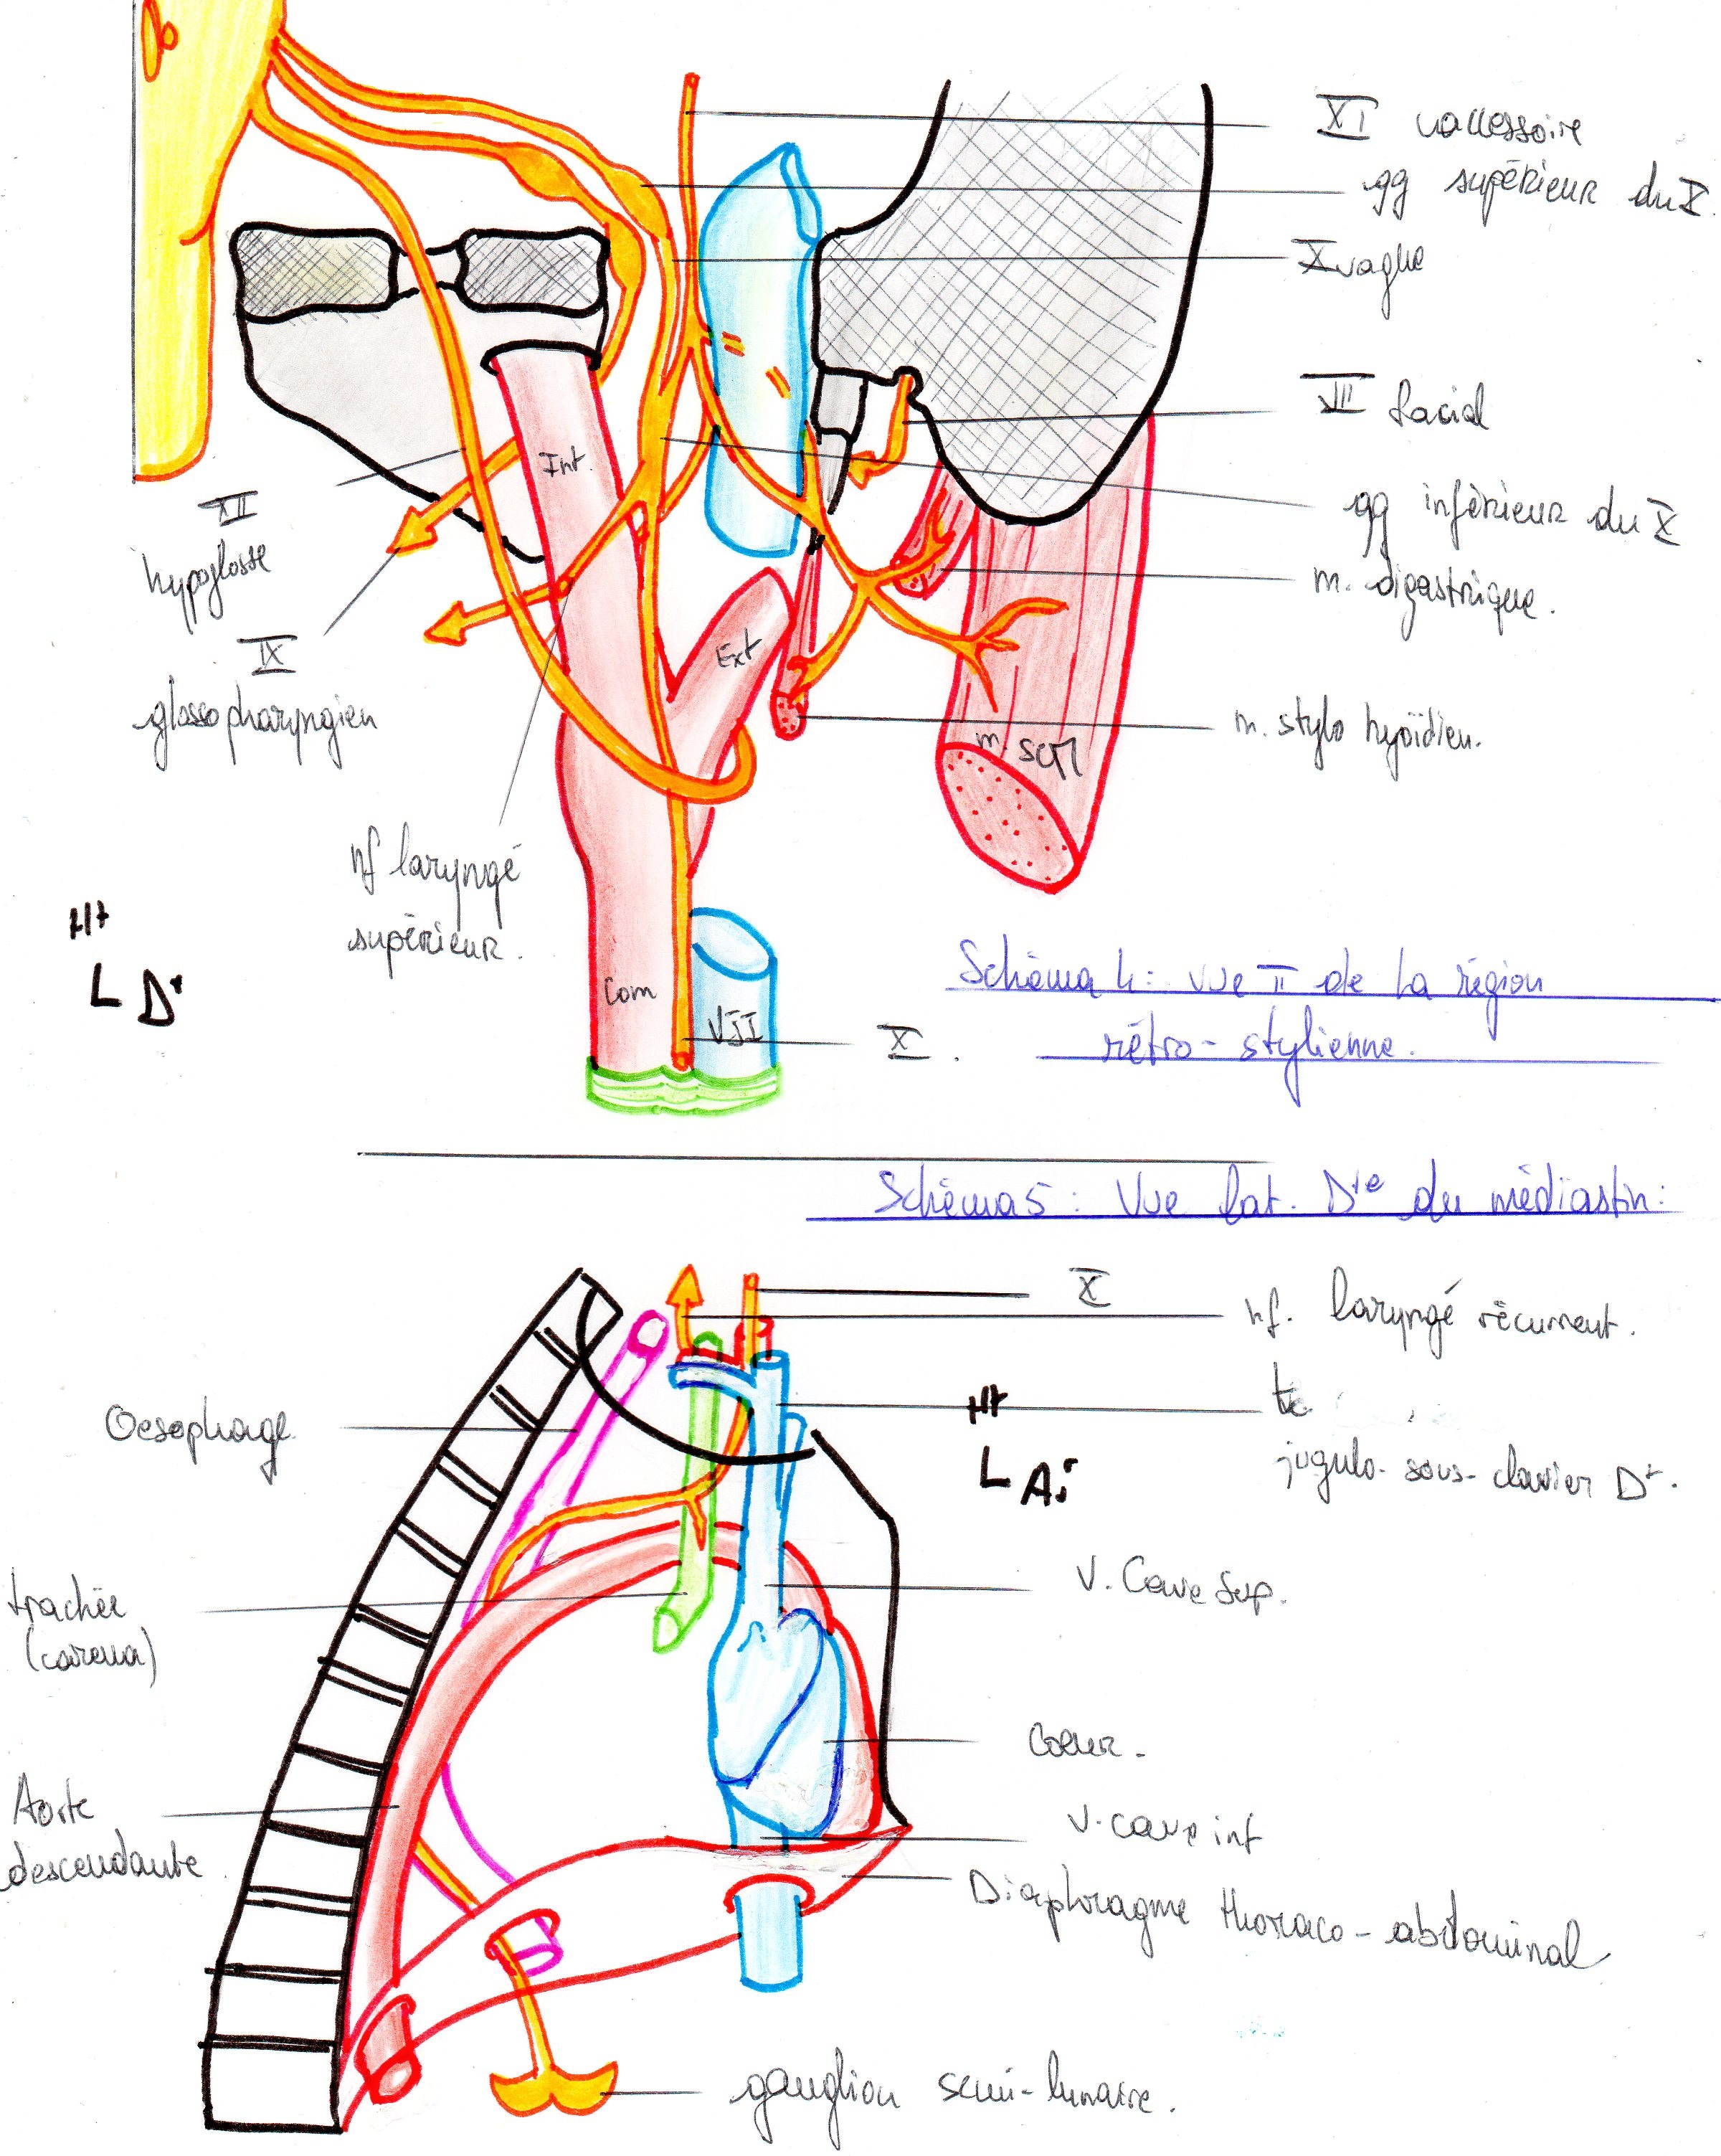 XI accessoire
gg supérieur du X.
X vague
VII facial
Int.
XII
hypoglosse
gg inférieur du X
m. digastrique.
IX
glossopharyngien
Ext
m. stylo hyoïdien.
m. SCM
nf laryngé
supérieur.
Ht
L Dt
Com
VJI
X.
Schéma 4: vue π de la région
rétro-stylienne.
Schéma 5: Vue lat. Dte du médiastin:
X
nf. laryngé récurrent.
Oesophage
Ht
L Ar
tc
jugulo-sous-clavier Dt.
trachée
(carena)
V. Cave Sup.
Coeur.
Aorte
descendante
V. cave inf
Diaphragme thoraco-abdominal
ganglion semi-lunaire.